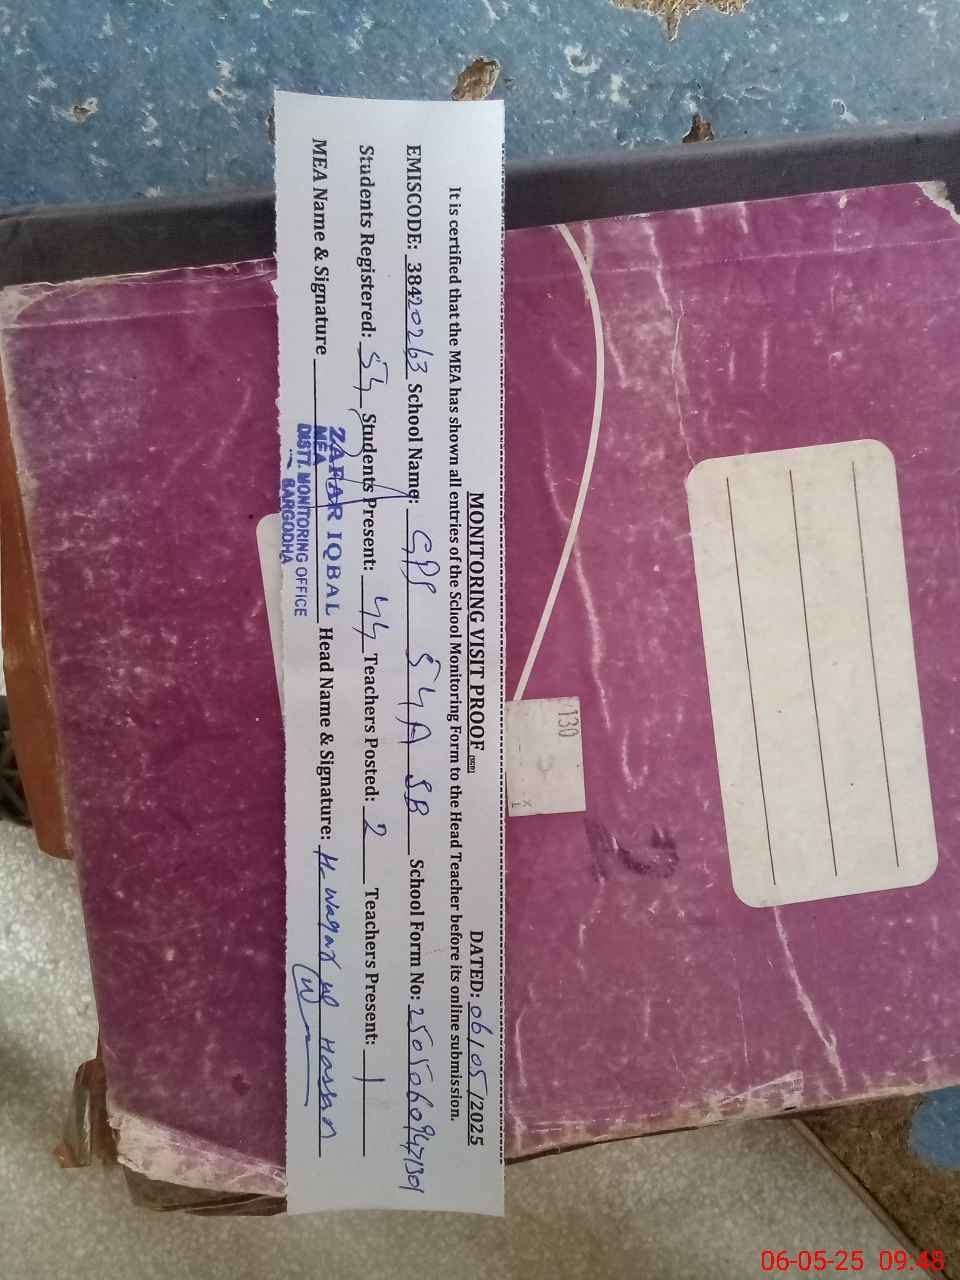 MONITORING VISIT PROOF DATED: 06/05/2025
It is certified that the MEA has shown all entries of the School Monitoring Form to the Head Teacher before its online submission.
EMISCODE: 38420263 School Name: GPS 54A SB School Form No: 2505060947301
Students Registered: 54 Students Present: 44 Teachers Posted: 2 Teachers Present: 1
MEA Name & Signature ZARAR IQBAL Head Name & Signature: H. Waqar ul Hassan
MEA
DISTT. MONITORING OFFICE
SARGODHA
130
06-05-25 09:48